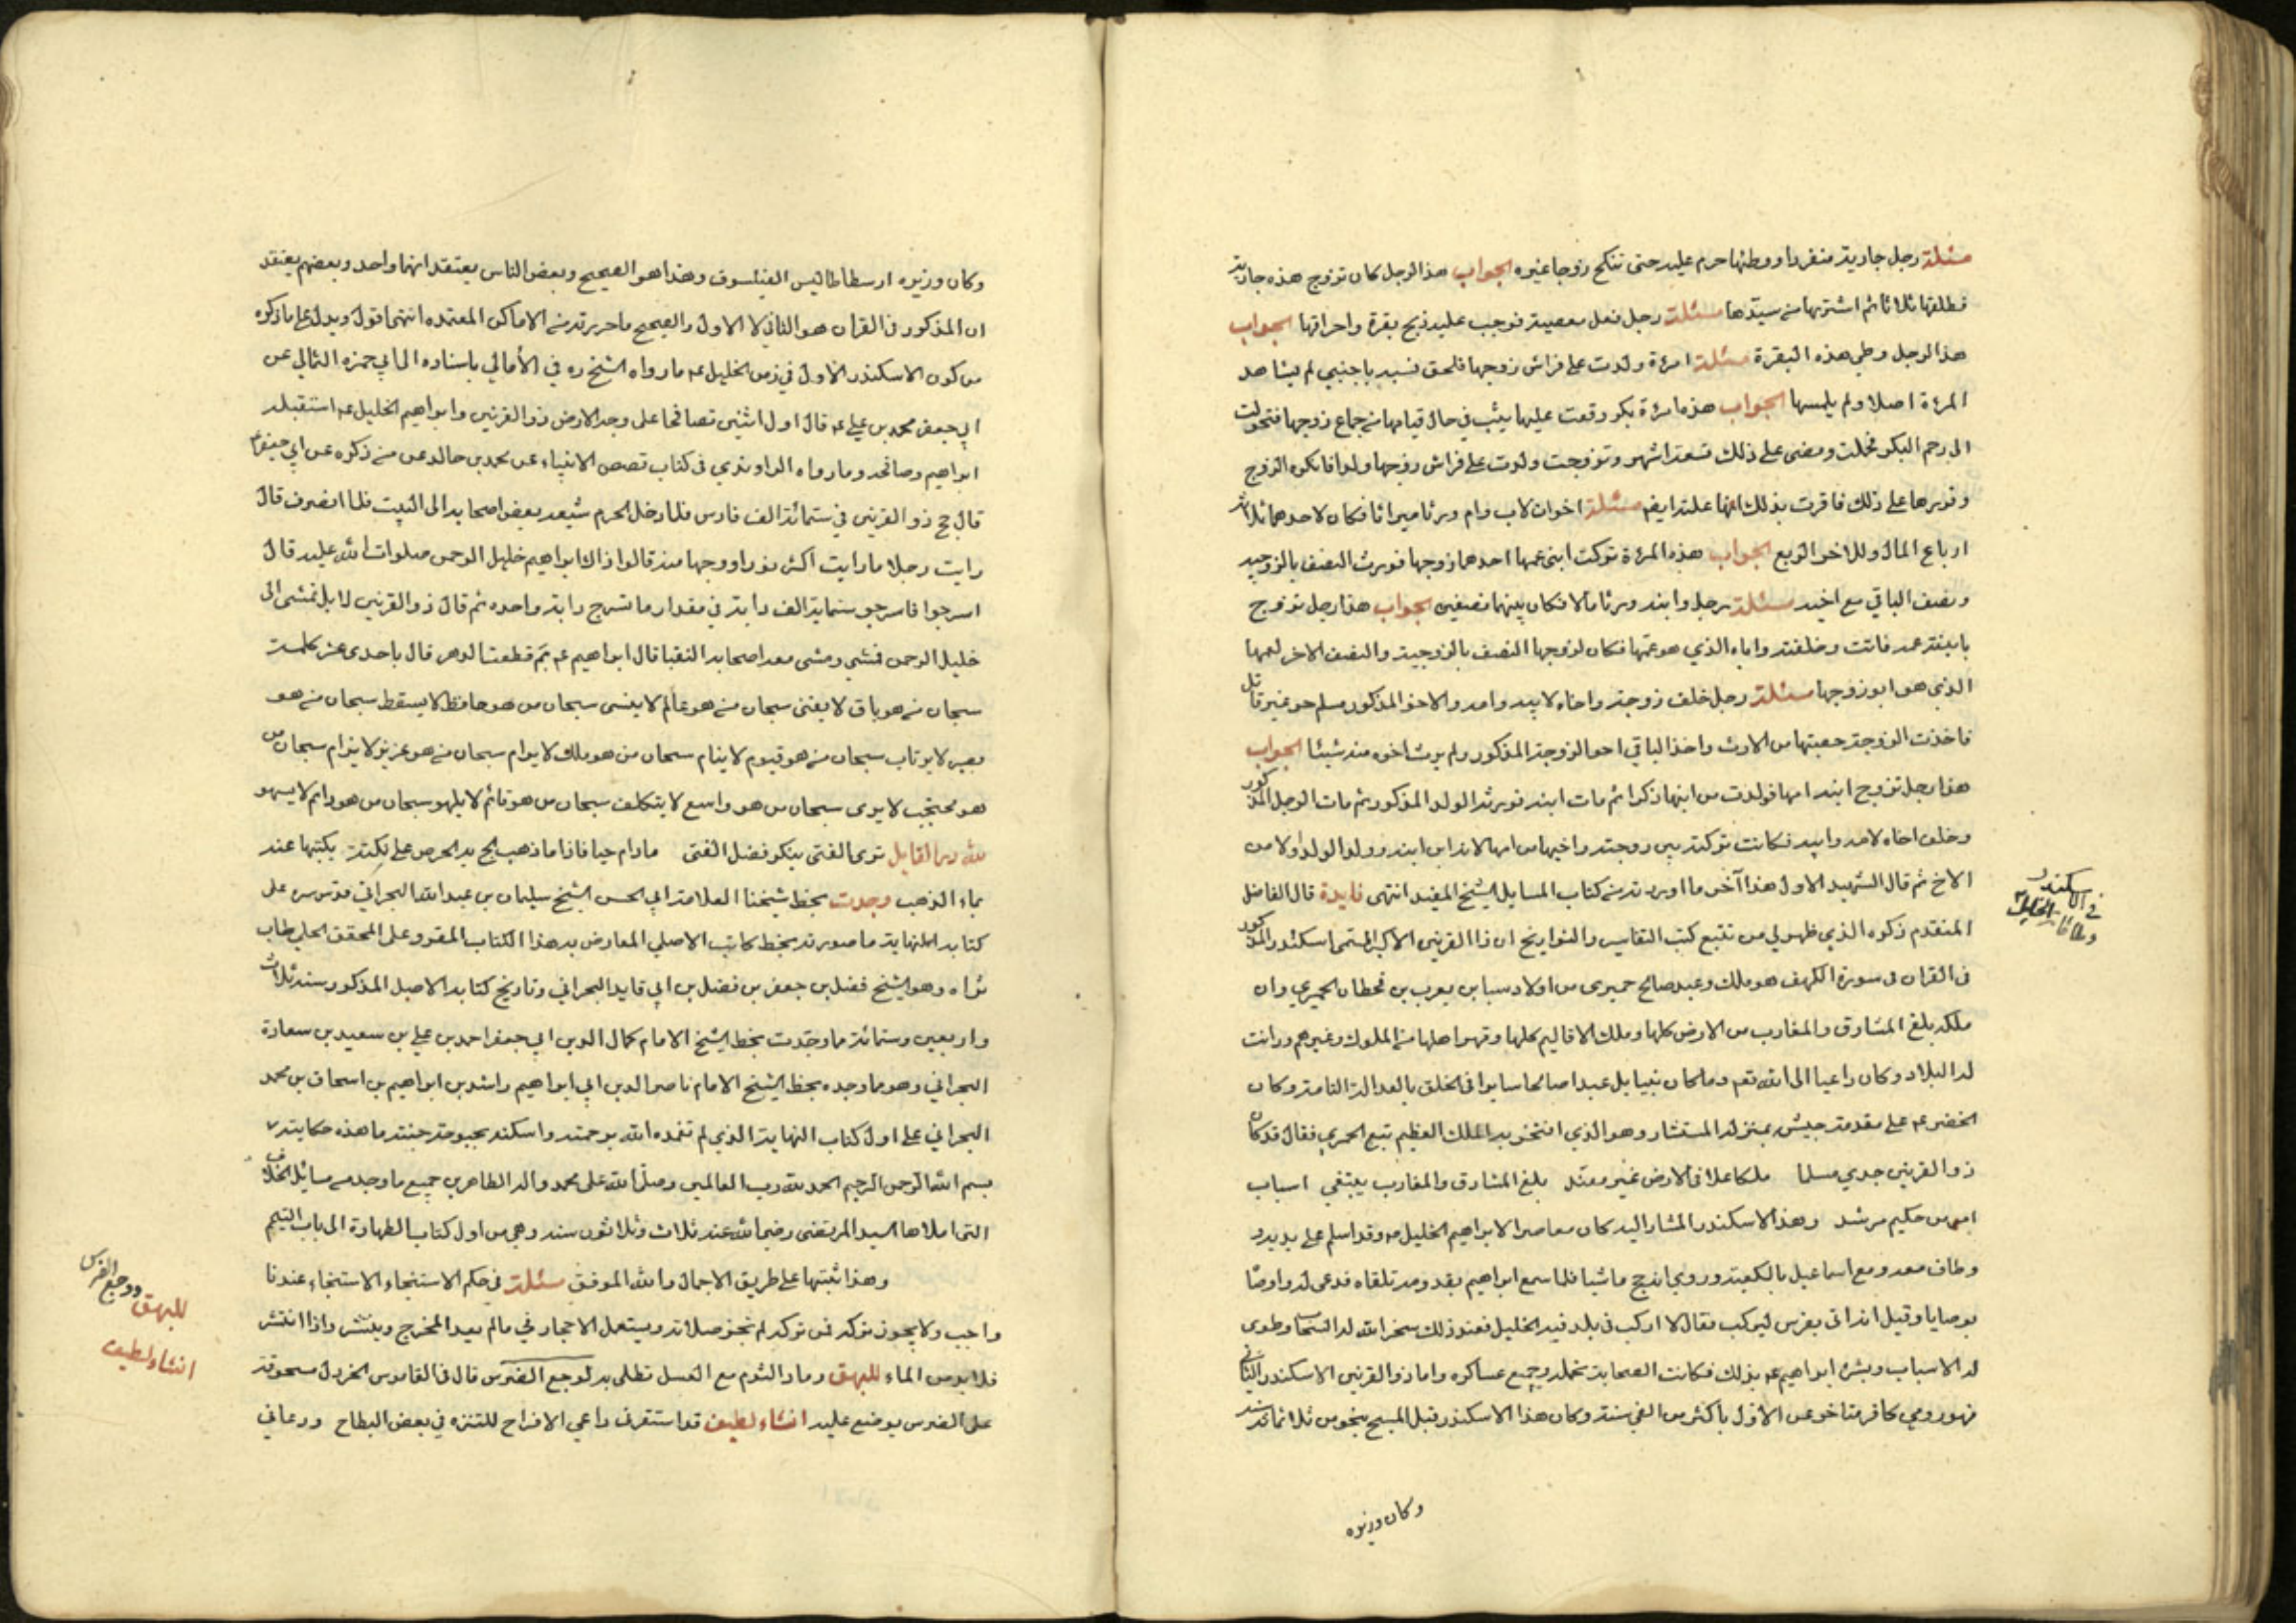 مسئلة رجل جاريته منفردا ووطئها حرم عليه حتى تنكح زوجا غيره الجواب هذا الرجل كان تزوج هذه جارية
فطلقها ثلاثا ثم اشتريها من سيدها مسئلة رجل فعل معصية فوجب عليه ذبح بقرة واحراقها الجواب
هذا الرجل وطي هذه البقرة مسئلة امرءة ولدت على فراش زوجها فلحق نسبه باجنبي لم يشاهد
المرءة اصلا ولم يلمسها الجواب هذه امرءة بكر وقعت عليها ثيب في حال قيامها من جماع زوجها فتحولت
الى رحم البكر فحملت ومضى على ذلك تسعة اشهر وتزوجت ولدت على فراش زوجها ولدا فانكره الزوج
وقررها على ذلك فاقرت بذلك ايضا مسئلة اخوان لاب وام ورثا ميراثا فكان لاحدهما ثلاثة
ارباع المال وللاخر الربع الجواب هذه المرءة تركت ابنى عمها احدهما زوجها فورث النصف بالزوجية
ونصف الباقي مع اخيه مسئلة رجل وابنه ورثا مالا فكان بينهما نصفين الجواب هذا رجل تزوج
بابنة عمه فماتت وخلفته واباه الذي هو عمها فكان لزوجها النصف بالزوجية والنصف الاخر لعمها
الذي هو ابو زوجها مسئلة رجل خلف زوجته واخاه لابيه وامه والاخ المذكور مسلم حر غير قاتل
فاخذت الزوجة حصتها من الارث واخذ الباقي اخو الزوجة المذكور ولم يرث اخوه منه شيئا الجواب
هذا رجل تزوج ابنه امها فولدت من ابنها ذكرا ثم مات ابنه فورثه الولد المذكور ثم مات الرجل المذكور
وخلف اخاه لامه وابيه فكانت تركته بين زوجته واخيها من امها لانه ابن ابنه وولد الولد اولا من
الاخ ثم قال الشهيد الاول هذا آخر ما اوردته من كتاب المسايل للشيخ المفيد انتهى فايدة قال الفاضل
المتقدم ذكره الذي ظهر لي من تتبع كتب التفاسير والتواريخ ان ذا القرنين الاكبر المسمى اسكندر المذكور
في القران في سورة الكهف هو ملك وعبد صالح حميرى من اولاد سبا بن يعرب بن قحطان الحميري وان
ملكه بلغ المشارق والمغارب من الارض كلها وملك الاقاليم كلها وقهر اهلها من الملوك وغيرهم ودانت
له البلاد وكان داعيا الى الله تعم وما كان نبيا بل عبدا صالحا سايرا في الخلق بالعدالة التامة وكان
الخضر عم على مقدمة جيش بمنزلة المستشار وهو الذي افتخر به الملك العظيم تبع الحميري فقال قد كان
ذو القرنين جدي مسلما ملكا علا في الارض غير معبد بلغ المشارق والمغارب يبتغي اسباب
امر من حكيم مرشد وهذا الاسكندر المشار اليه كان معاصرا لابراهيم الخليل عم وقد اسلم على يديه و
وطاف معه ومع اسماعيل بالكعبة وروي انه حج ماشيا فلما سمع ابراهيم بقدومه تلقاه فدعى له واوصا
بوصايا وقيل انه اتى بفرس ليركب فقال لا اركب في بلد فيه الخليل فعند ذلك سخر الله له السحاب وطوى
له الاسباب وبشره ابراهيم عم بذلك فكانت السحابة تحمله وجميع عساكره واما ذو القرنين الاسكندر الثاني
فهو رومي كافر متاخر عن الاول باكثر من الفي سنة وكان هذا الاسكندر قبل المسيح بنحو من ثلاثمائة سنة
وكان وزيره
في اسكندر
وكان وزيره ارسطاطاليس الفيلسوف وهذا هو الصحيح وبعض الناس يعتقد انهما واحد وبعضهم يعتقد
ان المذكور في القران هو الثاني لا الاول والصحيح ما حررته من الاماكن المعتمده انتهى اقول ويدل على ما ذكره
من كون الاسكندر الاول في زمن الخليل عم ما رواه الشيخ ره في الأمالي باسناده الى ابي حمزه الثمالي عن
ابي جعفر محمد بن علي عم قال اول اثنين تصافحا على وجه الارض ذو القرنين وابراهيم الخليل عم استقبله
ابراهيم وصافحه وما رواه الراوندي في كتاب قصص الانبياء عن محمد بن خالد عن من ذكره عن ابي جعفر عم
قال حج ذو القرنين في ستمائة الف فارس فلما دخل الحرم شيعه بعض اصحابه الى البيت فلما انصرف قال
رايت رجلا ما رايت اكثر نورا ووجها منه قالوا ذاك ابراهيم خليل الرحمن صلوات الله عليه قال
اسرجوا فاسرجو ستماية الف دابة في مقدار ما تسرج دابة واحده ثم قال ذو القرنين لا بل نمشى الى
خليل الرحمن فمشى ومشى معه اصحابه النقبا قال ابراهيم عم بم قطعت الدهر قال باحدى عشر كلمة
سبحان من هو باق لا يفنى سبحان من هو عالم لا ينسى سبحان من هو حافظ لا يسقط سبحان من هو
بصير لا يرتاب سبحان من هو قيوم لا ينام سبحان من هو ملك لا يرام سبحان من هو عزيز لا يرام سبحان من
هو محتجب لا يرى سبحان من هو واسع لا يتكلف سبحان من هو قائم لا يلهو سبحان من هو دائم لا يسهو
لله در القايل ترى الفتى ينكر فضل الفتى مادام حيا فاذا ما ذهب لج به الحرص على نكتة يكتبها عنه
بماء الذهب وجدت بخط شيخنا العلامة ابي الحسن الشيخ سليمان بن عبد الله البحراني قدس سره على
كتابه النهاية ما صورته بخط كاتب الاصلي المعارض به هذا الكتاب المقرو على المحقق الحلي طاب
ثراه وهو الشيخ فضل بن جعفر بن فضل بن ابي قايد البحراني وتاريخ كتابه الاصل المذكور سنة ثلاث
واربعين وستمائة ما وجدت بخط الشيخ الامام كمال الدين ابي جعفر احمد بن علي بن سعيد بن سعادة
البحراني وهو مما وجده بخط الشيخ الامام ناصر الدين ابي ابراهيم راشد بن ابراهيم بن اسحاق بن محمد
البحراني على اول كتاب النهاية الذي لم تغمده الله برحمته واسكنه بحبوحة جنته ما هذه حكايته
بسم الله الرحمن الرحيم الحمد لله رب العالمين وصلى الله على محمد واله الطاهرين جميع ما وجد من مسائل الخلاف
التى املاها السيد المرتضى رضي الله عنه ثلاث وثلاثون سنة وهي من اول كتاب الطهارة الى باب التيمم
وهذا ثبتها على طريق الاجمال والله الموفق مسئلة في حكم الاستنجاء الاستنجاء عندنا
واجب ولا يجوز تركه فمن تركه لم تجز صلاته ويستعمل الاحجار في مالم يعد المخرج وينتشر واذا انتشر
فلا بد من الماء للبهق رماد الثوم مع العسل تطلى به لوجع الضرس قال في القاموس الخردل مسحوقة
على الضرس يوضع عليه انشاء لطيف قد استفزني داعي الافراح للتنزه في بعض البطاح ودعاني
للبهق ووجع الضرس
انشاء لطيف